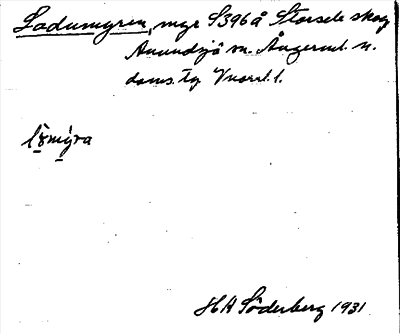 Ladumyren, myr S 396 å Storsele skog
Anundsjö sn. Ångerml. n.
doms. tg Vnorrl. l.
lòmýra
H H Söderberg 1931